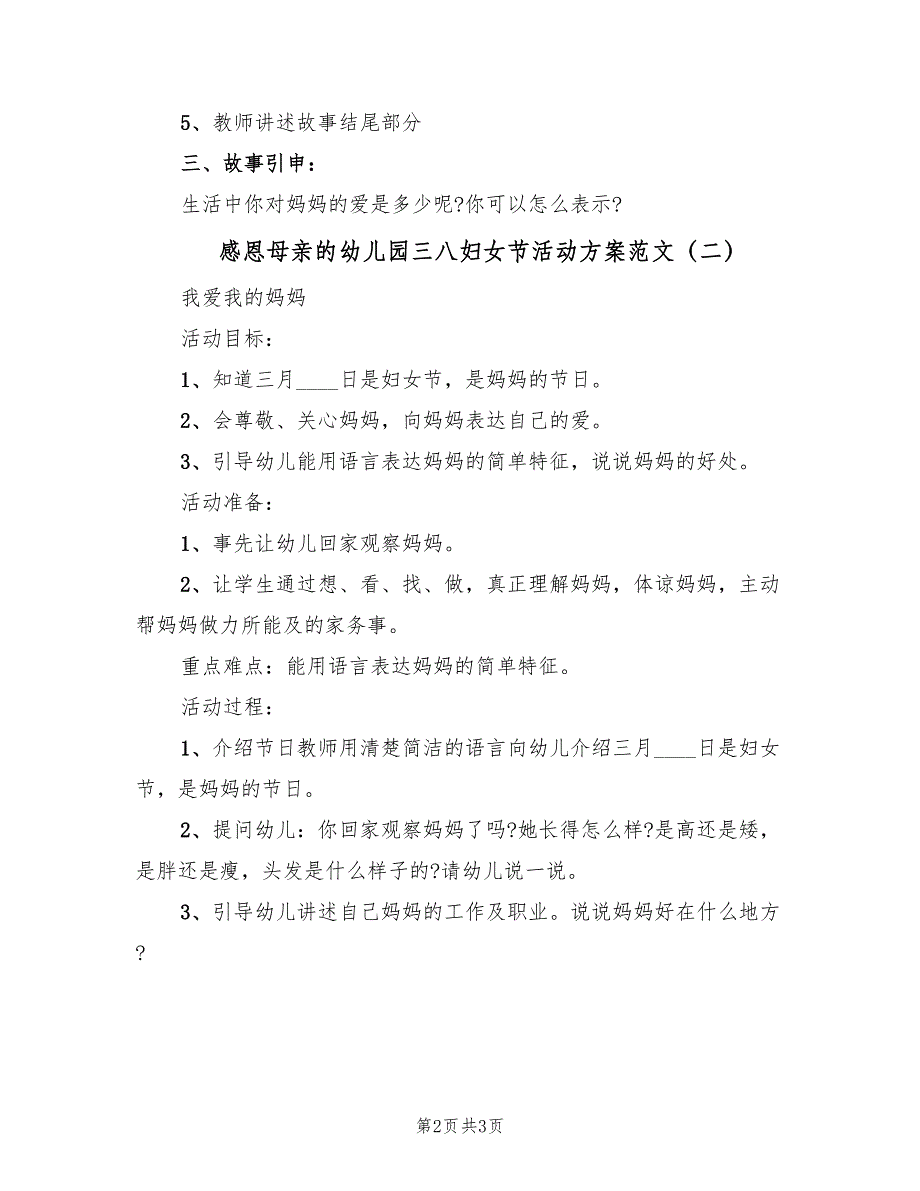 5、教师讲述故事结尾部分
三、故事引申：
生活中你对妈妈的爱是多少呢?你可以怎么表示?
感恩母亲的幼儿园三八妇女节活动方案范文（二）
我爱我的妈妈
活动目标：
1、知道三月____日是妇女节，是妈妈的节日。
2、会尊敬、关心妈妈，向妈妈表达自己的爱。
3、引导幼儿能用语言表达妈妈的简单特征，说说妈妈的好处。
活动准备：
1、事先让幼儿回家观察妈妈。
2、让学生通过想、看、找、做，真正理解妈妈，体谅妈妈，主动
帮妈妈做力所能及的家务事。
重点难点：能用语言表达妈妈的简单特征。
活动过程：
1、介绍节日教师用清楚简洁的语言向幼儿介绍三月____日是妇女
节，是妈妈的节日。
2、提问幼儿：你回家观察妈妈了吗?她长得怎么样?是高还是矮，
是胖还是瘦，头发是什么样子的?请幼儿说一说。
3、引导幼儿讲述自己妈妈的工作及职业。说说妈妈好在什么地方
?
第2页共3页